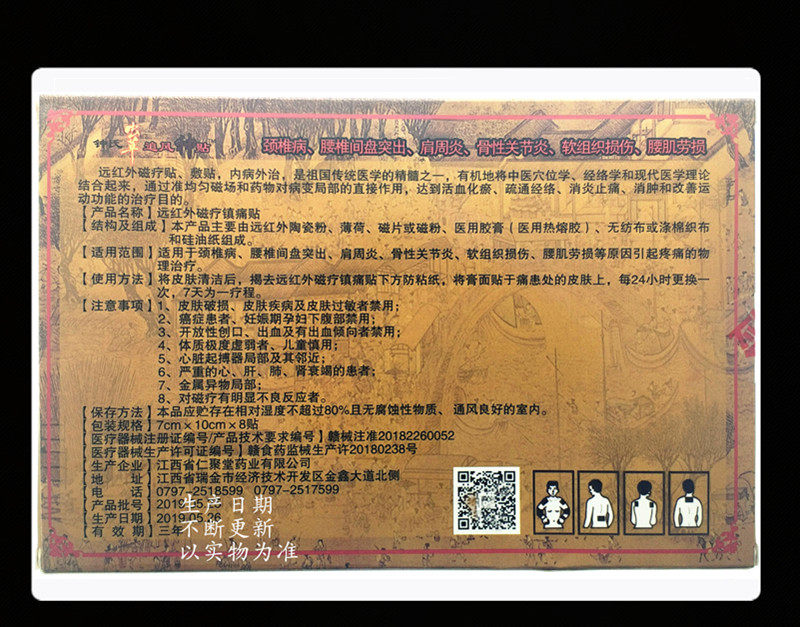 钟氏草追风神贴 颈椎病、腰椎间盘突出、肩周炎、骨性关节炎、软组织损伤、腰肌劳损
远红外磁疗贴、敷贴，内病外治，是祖国传统医学的精髓之一，有机地将中医穴位学、经络学和现代医学理论
结合起来，通过准均匀磁场和药物对病变局部的直接作用，达到活血化瘀、疏通经络、消炎止痛、消肿和改善运
动功能的治疗目的。
【产品名称】远红外磁疗镇痛贴
【结构及组成】本产品主要由远红外陶瓷粉、薄荷、磁片或磁粉、医用胶膏（医用热熔胶）、无纺布或涤棉织布
和硅油纸组成。
【适用范围】适用于颈椎病、腰椎间盘突出、肩周炎、骨性关节炎、软组织损伤、腰肌劳损等原因引起疼痛的物
理治疗。
【使用方法】将皮肤清洁后，揭去远红外磁疗镇痛贴下方防粘纸，将膏面贴于痛患处的皮肤上，每24小时更换一
次，7天为一疗程。
【注意事项】1、皮肤破损、皮肤疾病及皮肤过敏者禁用；
2、癌症患者、妊娠期孕妇下腹部禁用；
3、开放性创口、出血及有出血倾向者禁用；
4、体质极度虚弱者、儿童慎用；
5、心脏起搏器局部及其邻近；
6、严重的心、肝、肺、肾衰竭的患者；
7、金属异物局部；
8、对磁疗有明显不良反应者。
【保存方法】本品应贮存在相对湿度不超过80%且无腐蚀性物质、通风良好的室内。
【包装规格】7cm×10cm×8贴
【医疗器械注册证编号/产品技术要求编号】赣械注准20182260052
【医疗器械生产许可证编号】赣食药监械生产许20180238号
【生产企业】江西省仁聚堂药业有限公司
【地 址】江西省瑞金市经济技术开发区金鑫大道北侧
【电 话】0797-2518599 0797-2517599
【产品批号】2019.05.26
【生产日期】2019.05.26
【有 效 期】三年
生产日期
不断更新
以实物为准